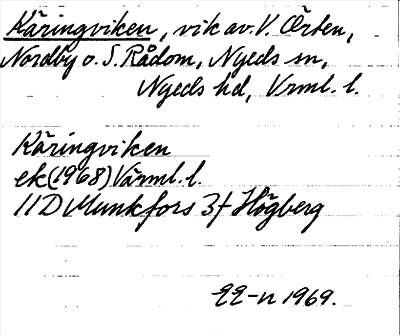 Käringviken, vik av. V. Örten,
Nordby o. S. Rådom, Nyeds sn,
Nyeds hd, Vrml. l.
Käringviken
ek (1968) Värml. l.
11 D Munkfors 3 f Högberg
1969.